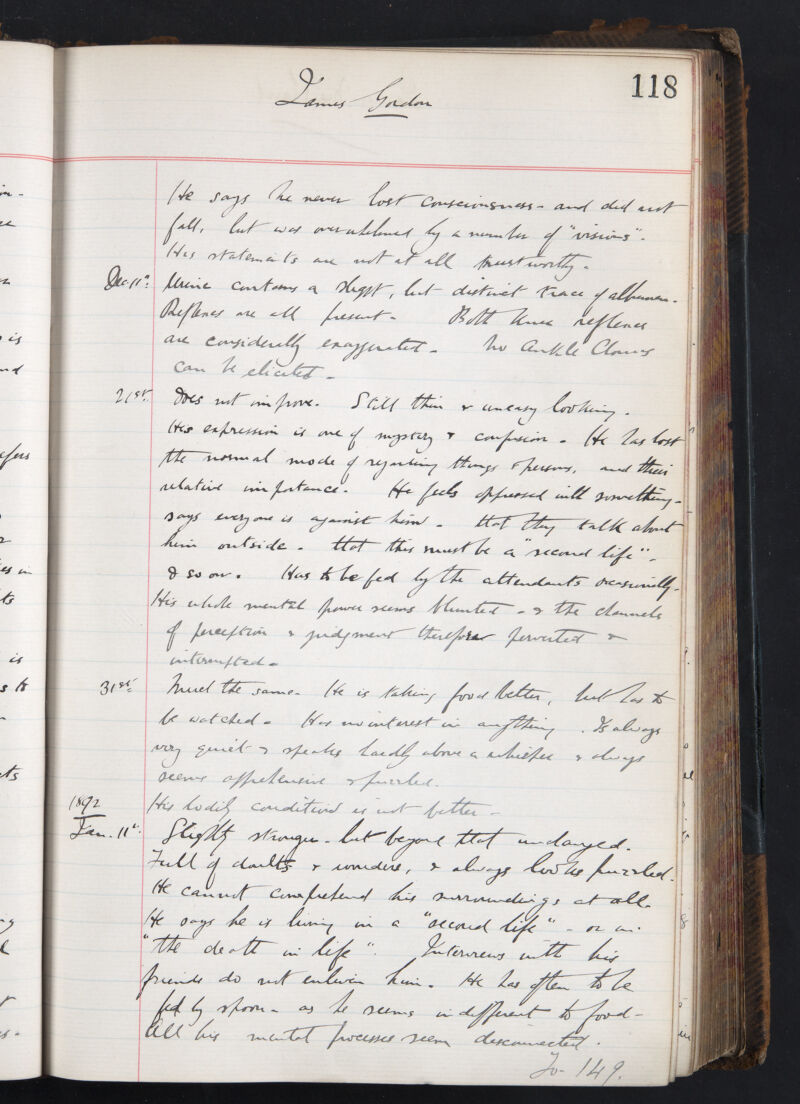 118
James Gordon
He says he never lost consciousness - and did not
fall, but was overwhelmed by a number of "visions".
His statements are not at all trustworthy.
Dec 11th. Urine contains a slight, but distinct trace of albumen.
Reflexes are all present. Both knee reflexes
are considerably exaggerated. No Ankle Clonus
can be elicited.
21st. Does not improve. Still thin & uneasy looking.
His expression is one of mystery & confusion. He has lost
the normal mode of regarding things & persons, and their
relative importance. He feels oppressed with something -
says everyone is against him - that they talk about
him outside - that this must be a "second life" -
& so on. Has to be fed by the attendants occasionally.
His whole mental power seems blunted - & the channels
of perception & judgment therefore perverted &
interrupted.
31st. Much the same. He is taking food better, but has to
be watched. Has no interest in anything. Is always
very quiet & speaks hardly above a whisper & always
seems apprehensive & puzzled.
His bodily condition is not better.
1892
Jan. 11th. Slightly stronger - but beyond that unchanged.
Full of doubts & wonders, & always looks puzzled.
He cannot comprehend his surroundings at all.
He says he is living in a "second life" - or in
"the death in life". Interviews with his
friends do not enliven him. He has often to be
fed by spoon - as he seems indifferent to food -
All his mental processes seem disconnected.
To 149.